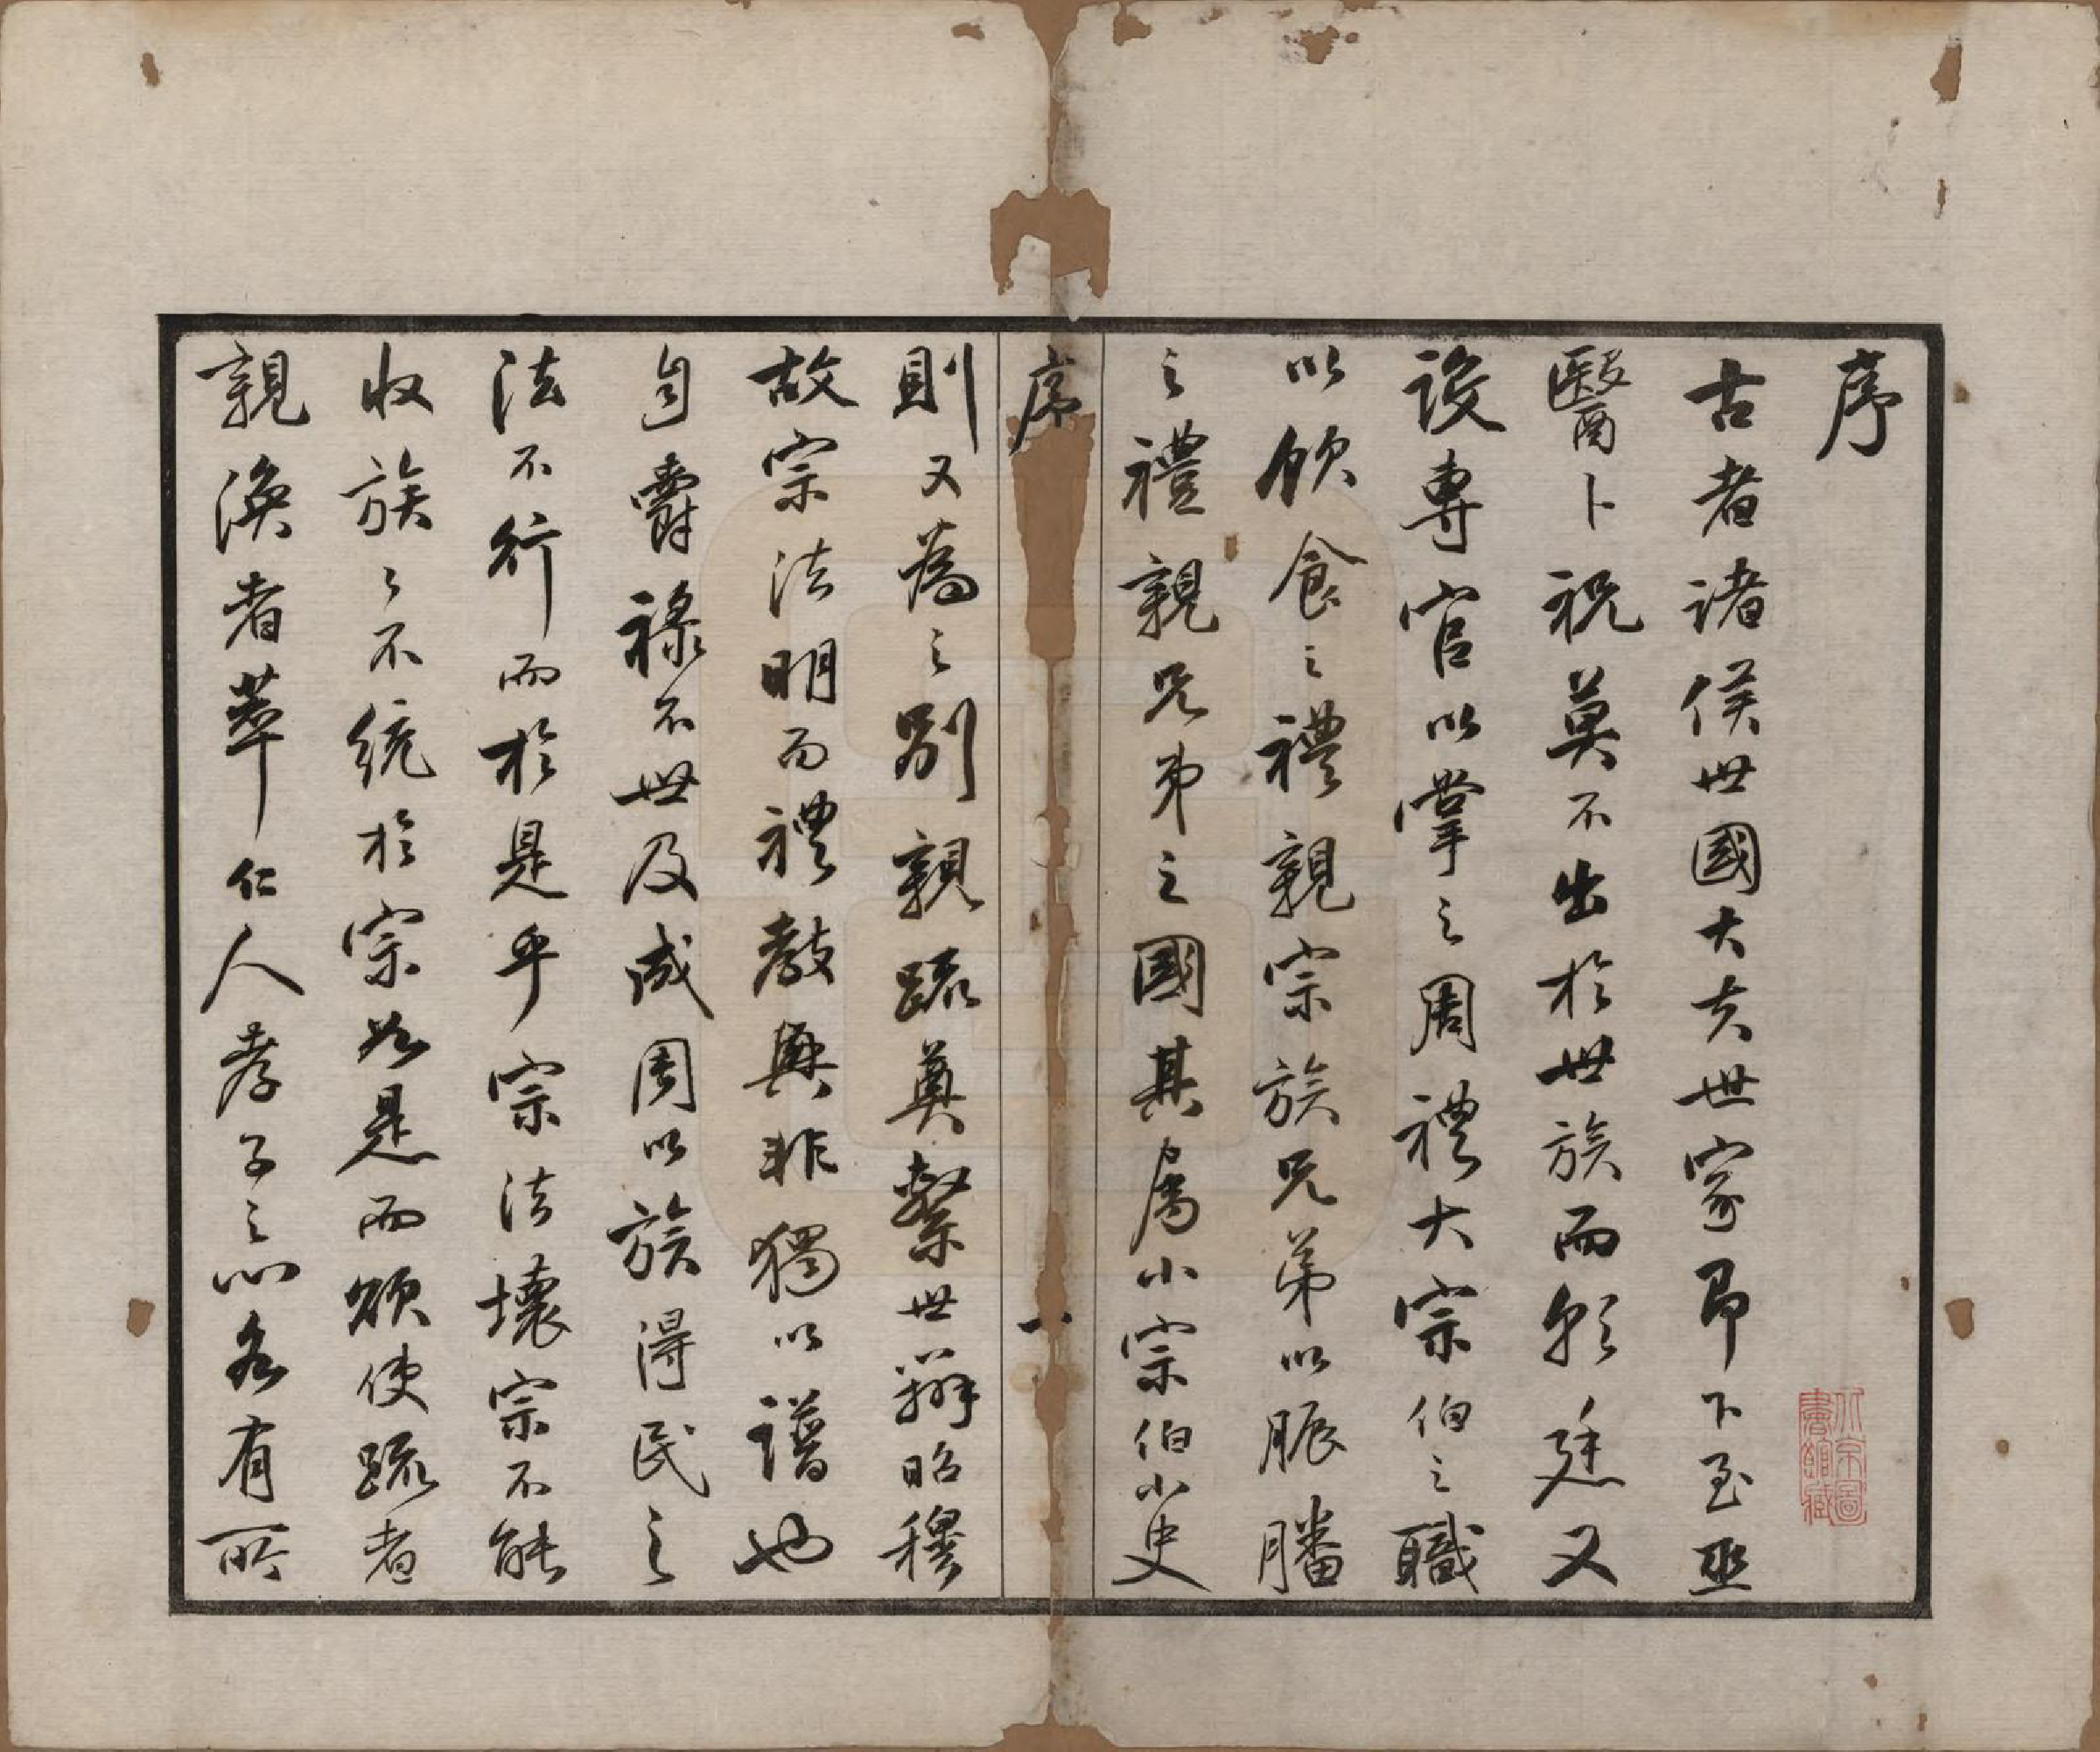 序
古者諸侯世國大夫世家即下至巫
醫卜祝莫不出於世族而朝廷又
設專官以掌之周禮大宗伯之職
以飲食之禮親宗族兄弟以脤膰
之禮親兄弟之國其屬小宗伯小史
序
一
則又為之別親疏奠繫世辨昭穆
故宗法明而禮教興非獨以譜也
自爵祿不世及成周以族得民之
法不行而於是乎宗法壞宗不能
收族〻不統於宗如是而欲使疏者
親渙者萃仁人孝子之心名有所